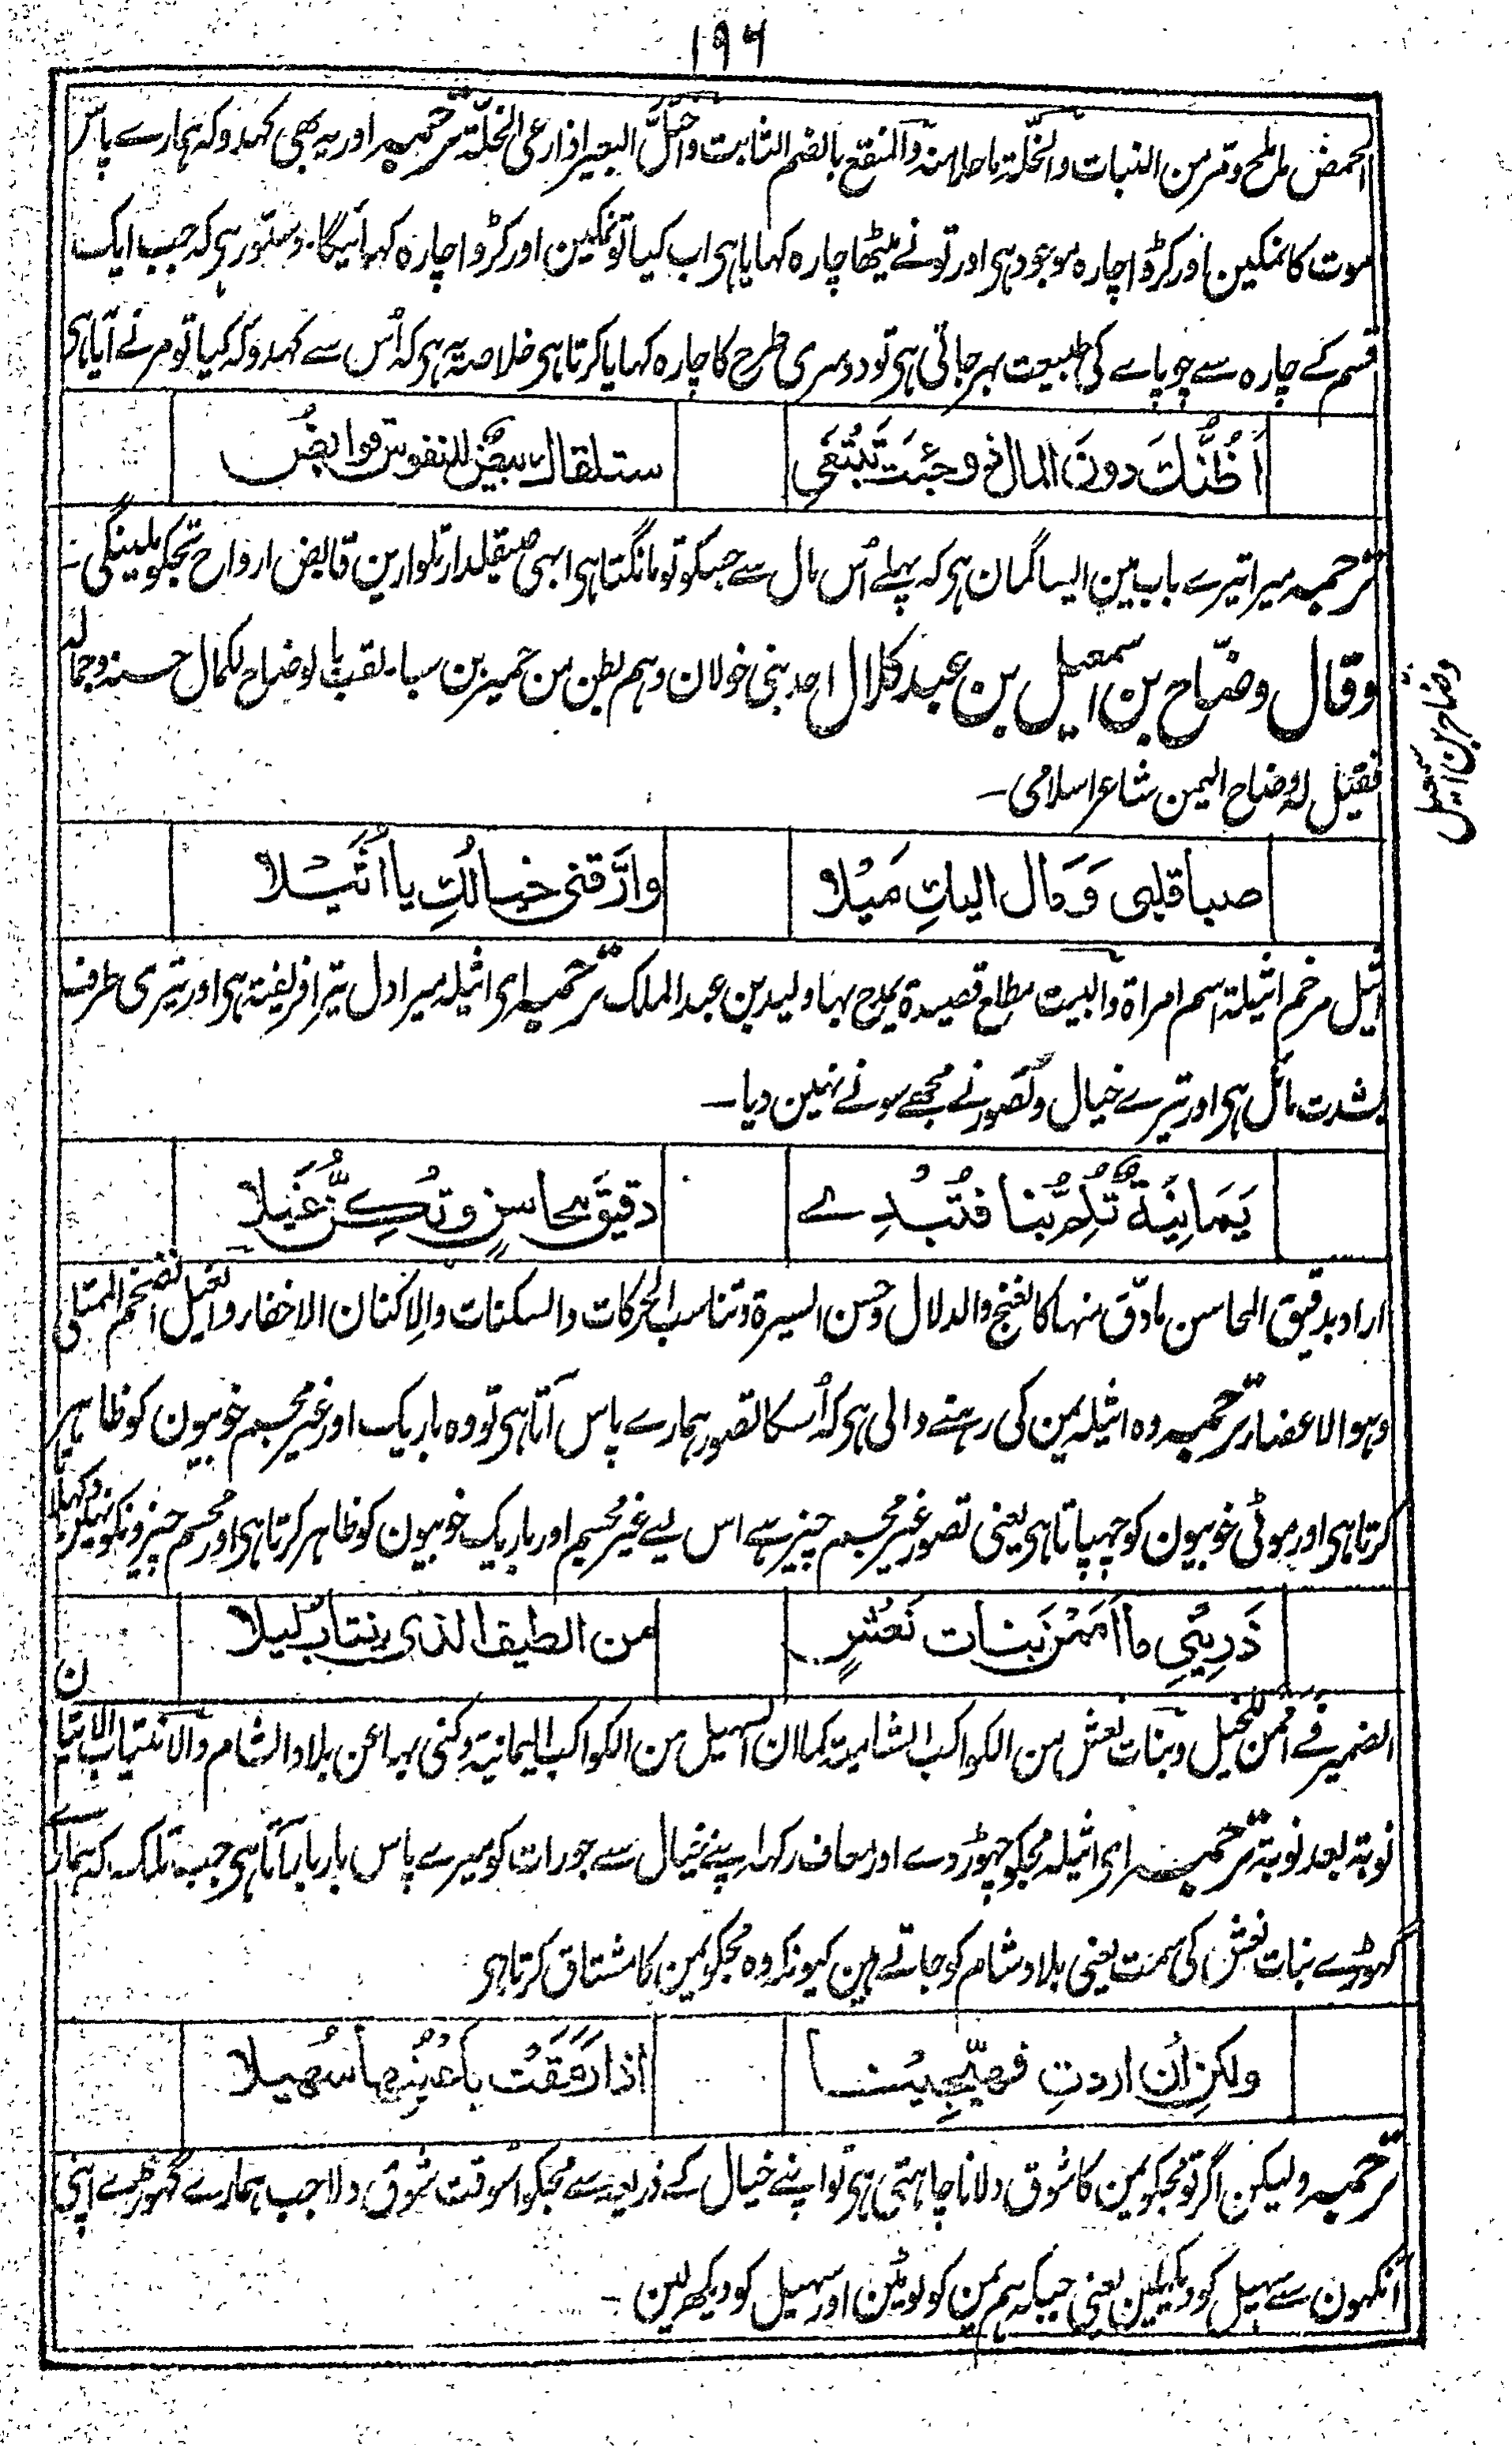 ۱۹۶
الحمض ما ملح ومر من النبات والخلّة ما حلا منه والمنقع بالضم الثابت واخلّ البعیر اذا رعی الخلّة ترجمہ اور یہ بھی کہدو کہ ہمارے پاس
موت کا نمکین اور کڑوا چارہ موجود ہی اور تونے میٹھا چارہ کہایا ہی اب کیا تو نمکین اور کڑوا چارہ کہائیگا۔ دستور ہی کہ جب ایک
قسم کے چارہ سے چوپاے کی طبیعت بہر جاتی ہی تو دوسری طرح کا چارہ کہایا کرتا ہی خلاصہ یہ ہی کہ اُس سے کہدو کہ کیا تو مرنے آیا ہی
اَظُنُّكَ دونَ المال ذو جئتَ تَبْتَغِی ستلقاك بیضٌ للنفوس قوابضُ
ترجمہ میرا تیرے باب مین ایسا گمان ہی کہ پہلے اُس مال سے جسکو تو مانگتا ہی ابھی صیقلدار تلوارین قابض ارواح تجکو ملینگی۔
وقال وضّاح بن اسمٰعیل بن عبد کلال احد بنی خولان وہم بطن من حمیر بن سبا۔ لقب بالوضاح لکمال حسنہ وجمالہ
فقیل لہ وضاح الیمن شاعر اسلامی۔
وضاح بن اسمٰعیل
صبا قلبی وَمَال الیكِ مَیْلا وارَّقنی خیالُكِ یا اُثَیْلا
اثیل مرخم اثیلة اسم امراة والبیت مطلع قصیدة یمدح بہا ولید بن عبد الملک ترجمہ ای اثیلہ میرا دل تیرا فریفتہ ہی اور تیری طرف
بشدت مائل ہی اور تیرے خیال و تصور نے مجھے سونے نہین دیا۔
یَمَانِیَةٌ تُلِمُّ بنا فتُبْدِے دقیقَ محاسنٍ وتُكِنُّ غَیْلا
اراد بدقیق المحاسن ما دقّ منہا کالغنج والدلال وحسن السیرة وتناسب الحرکات والسکنات والاکنان الاخفاء والغیل الضخم الممتلی
وہو الاعضاء ترجمہ وہ اثیلہ یمن کی رہنے والی ہی کہ اُسکا تصور ہمارے پاس آتا ہی تو وہ باریک اور غیر مجسم خوبیون کو ظاہر
کرتا ہی اور موٹی خوبیون کو چھپاتا ہی یعنی تصور غیر مجسم چیز ہے اس لیے غیر مجسم اور باریک خوبیون کو ظاہر کرتا ہی اور مجسم چیزونکو نہین دکھلاتا
ذَرِیْنِی ما اَمَمْنَ بنات نَعْشٍ من الطیف الذی ینتاب لیلا
الضمیر فے اممن للخیل وبنات نعش من الکواکب الشامیة کما ان السہیل من الکواکب الیمانیة وکنی بہا عن بلاد الشام والانتیاب الاتیان
نوبة بعد نوبة ترجمہ ای اثیلہ مجکو چھوڑ دے اور معاف رکہ اپنے خیال سے جو رات کو میرے پاس بار بار آتا ہی جب تلک کہ ہمارے
گھوڑے بنات نعش کی سمت یعنی بلاد شام کو جاتے ہین کیونکہ وہ مجکو یمن کا مشتاق کرتا ہی
ولكن اِن اردتِ فهیّجِیْنا اذا رَمَقَتْ باَعْیُنِها سُهیلا
ترجمہ ولیکن اگر تو مجکو یمن کا شوق دلانا چاہتی ہی تو اپنے خیال کے ذریعہ سے مجکو اسوقت شوق دلا جب ہمارے گھوڑے اپنی
آنکھون سے سہیل کو دیکھین یعنی جبکہ ہم یمن کو لوٹین اور سہیل کو دیکھ لین۔